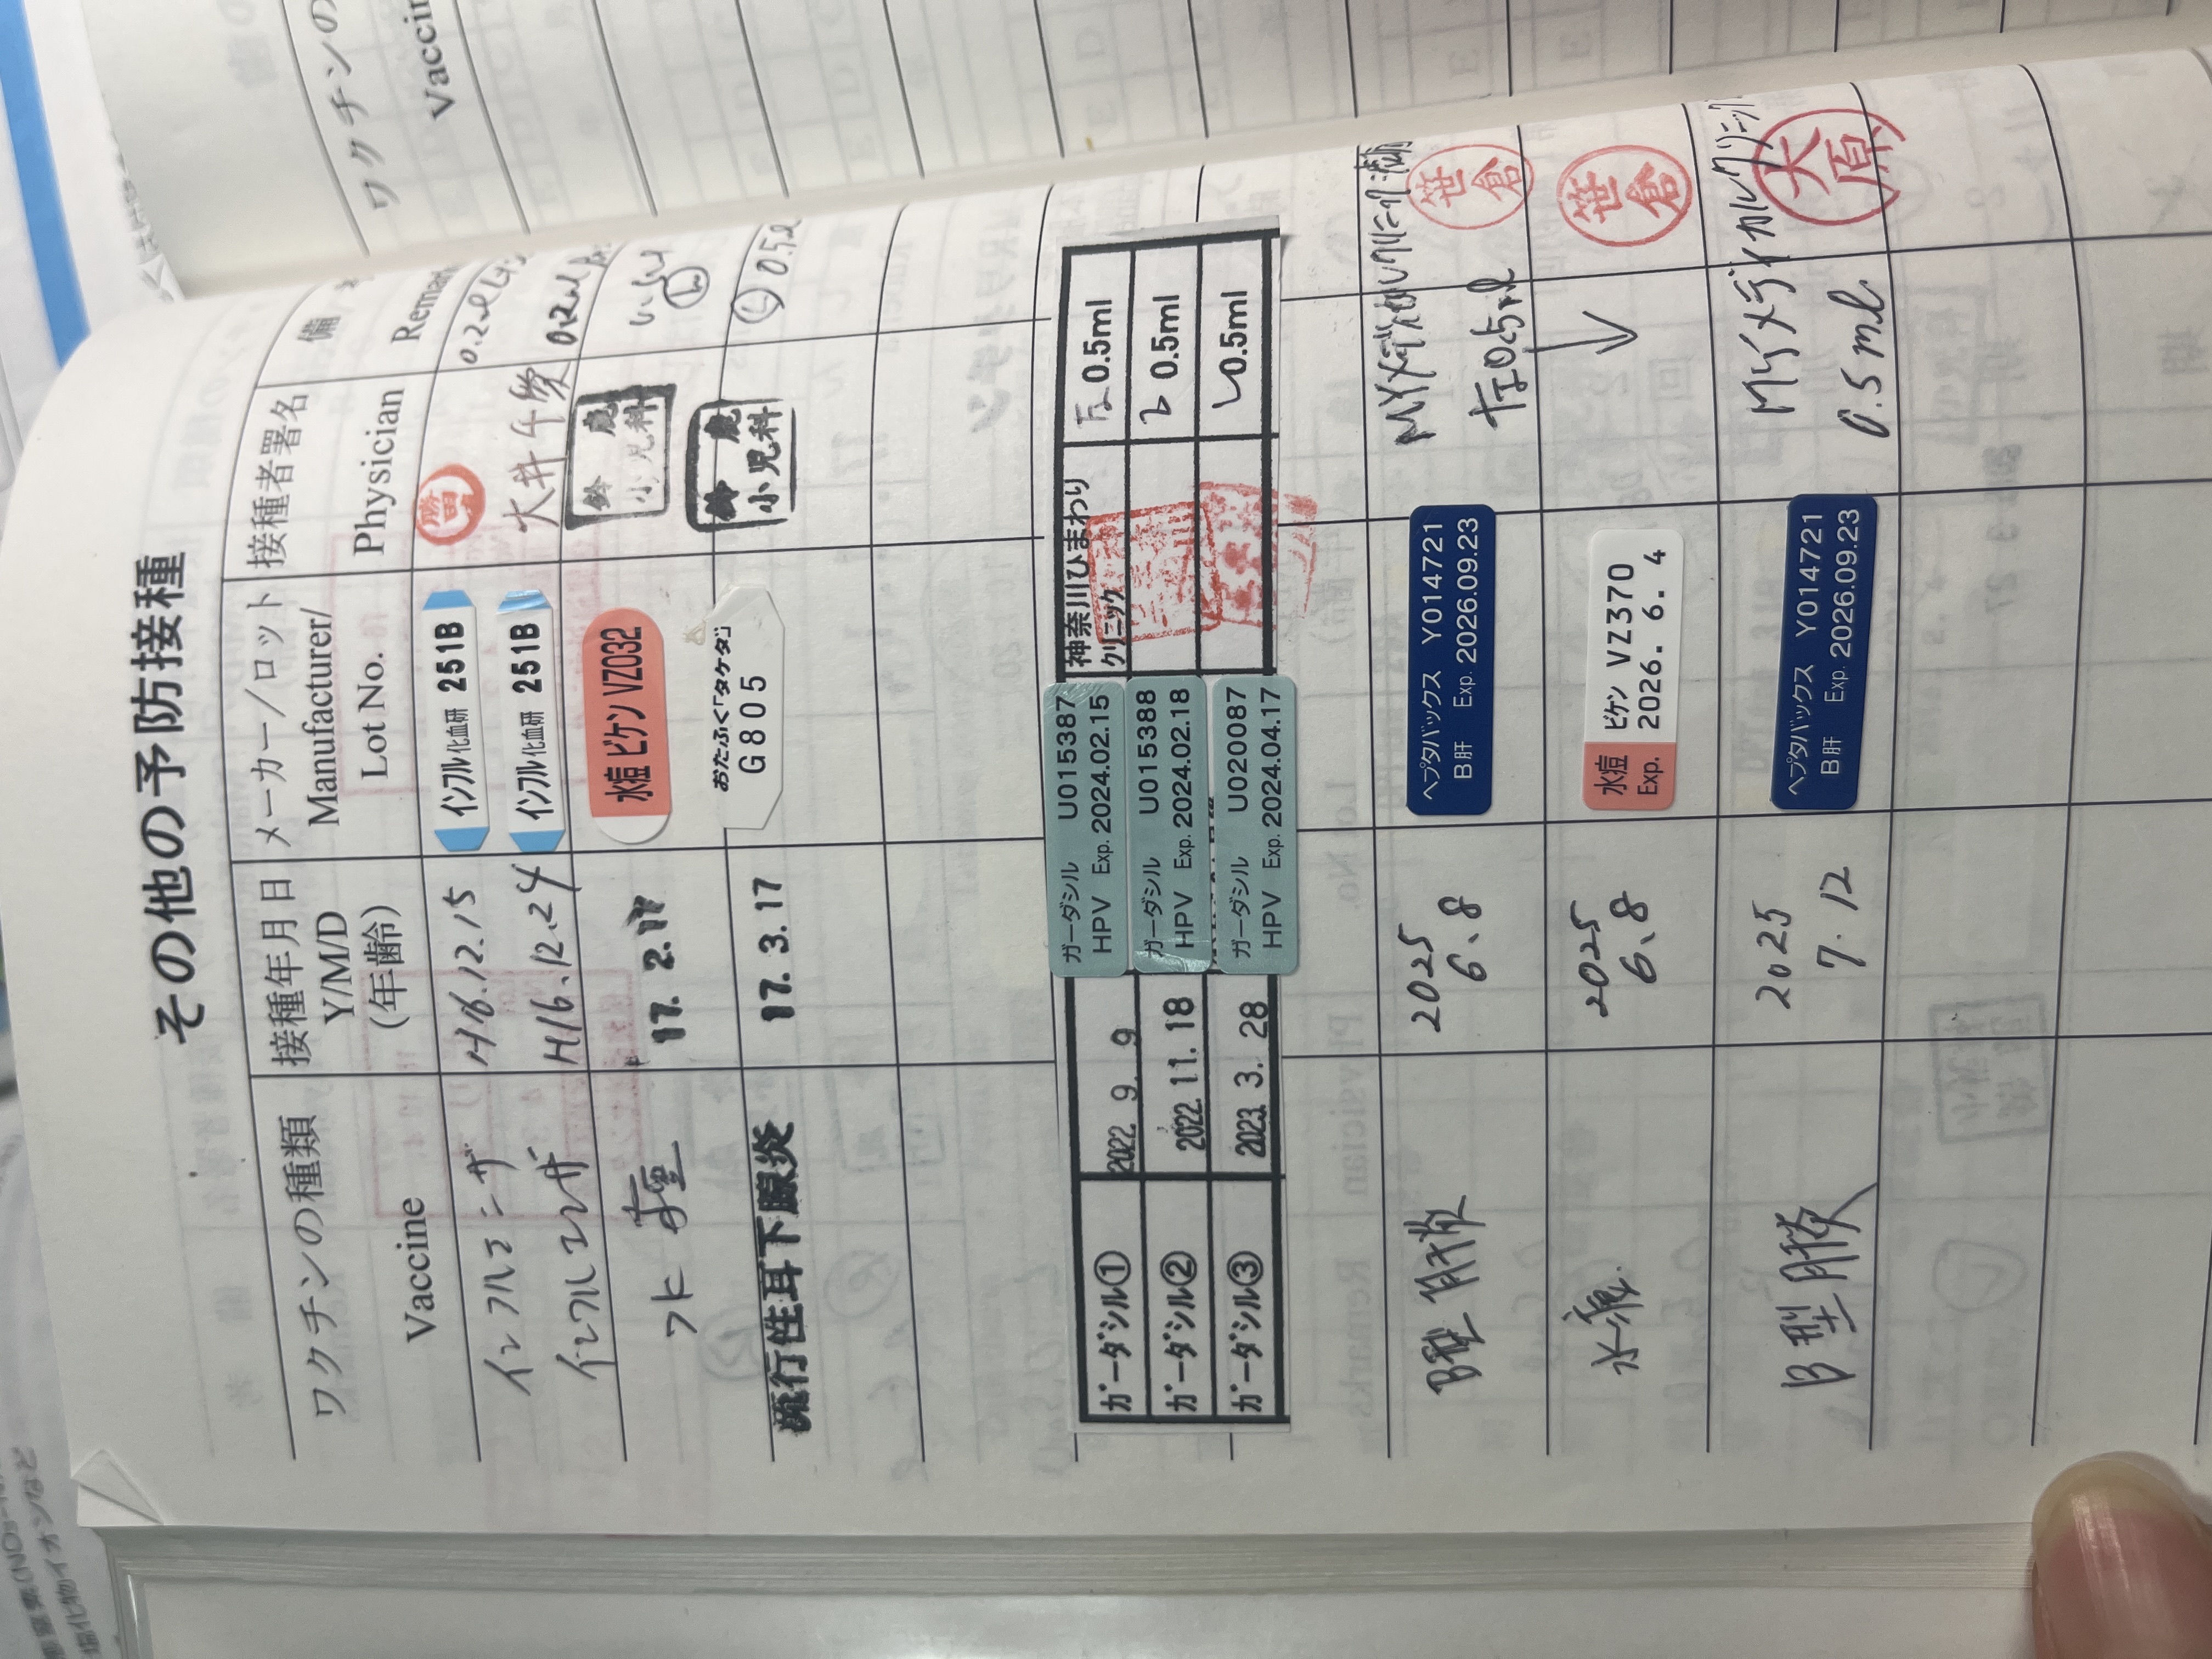 その他の予防接種
ワクチンの種類
Vaccine
接種年月日
Y/M/D
(年齢)
メーカー/ロット
Manufacturer/
Lot No.
接種者署名
Physician
備
Remar
インフルエンザ
H16.12.15
インフル 化血研 251B
0.2ml
インフルエンザ
H16.12.24
インフル 化血研 251B
大井
0.2ml
水痘
17. 2.
水痘 ビケン VZ032
鈴鹿
小児科
流行性耳下腺炎
17. 3. 17
おたふく「タケダ」
G805
鈴鹿
小児科
0.5
ガーダシル①
2022. 9. 9
ガーダシル U015387
HPV Exp. 2024.02.15
神奈川ひまわり
クリニック
0.5ml
ガーダシル②
2022. 11. 18
ガーダシル U015388
HPV Exp. 2024.02.18
0.5ml
ガーダシル③
2023. 3. 28
ガーダシル U020087
HPV Exp. 2024.04.17
0.5ml
B型肝炎
2025
6.8
ヘプタバックス Y014721
B肝 Exp. 2026.09.23
MYメディカルクリニック
左0.5ml
笹倉
水痘
2025
6.8
水痘 ビケン VZ370
Exp. 2026. 6. 4
↓
笹倉
B型肝炎
2025
7.12
ヘプタバックス Y014721
B肝 Exp. 2026.09.23
MYメディカルクリニック
0.5ml
大原
ワクチンの
Vaccin